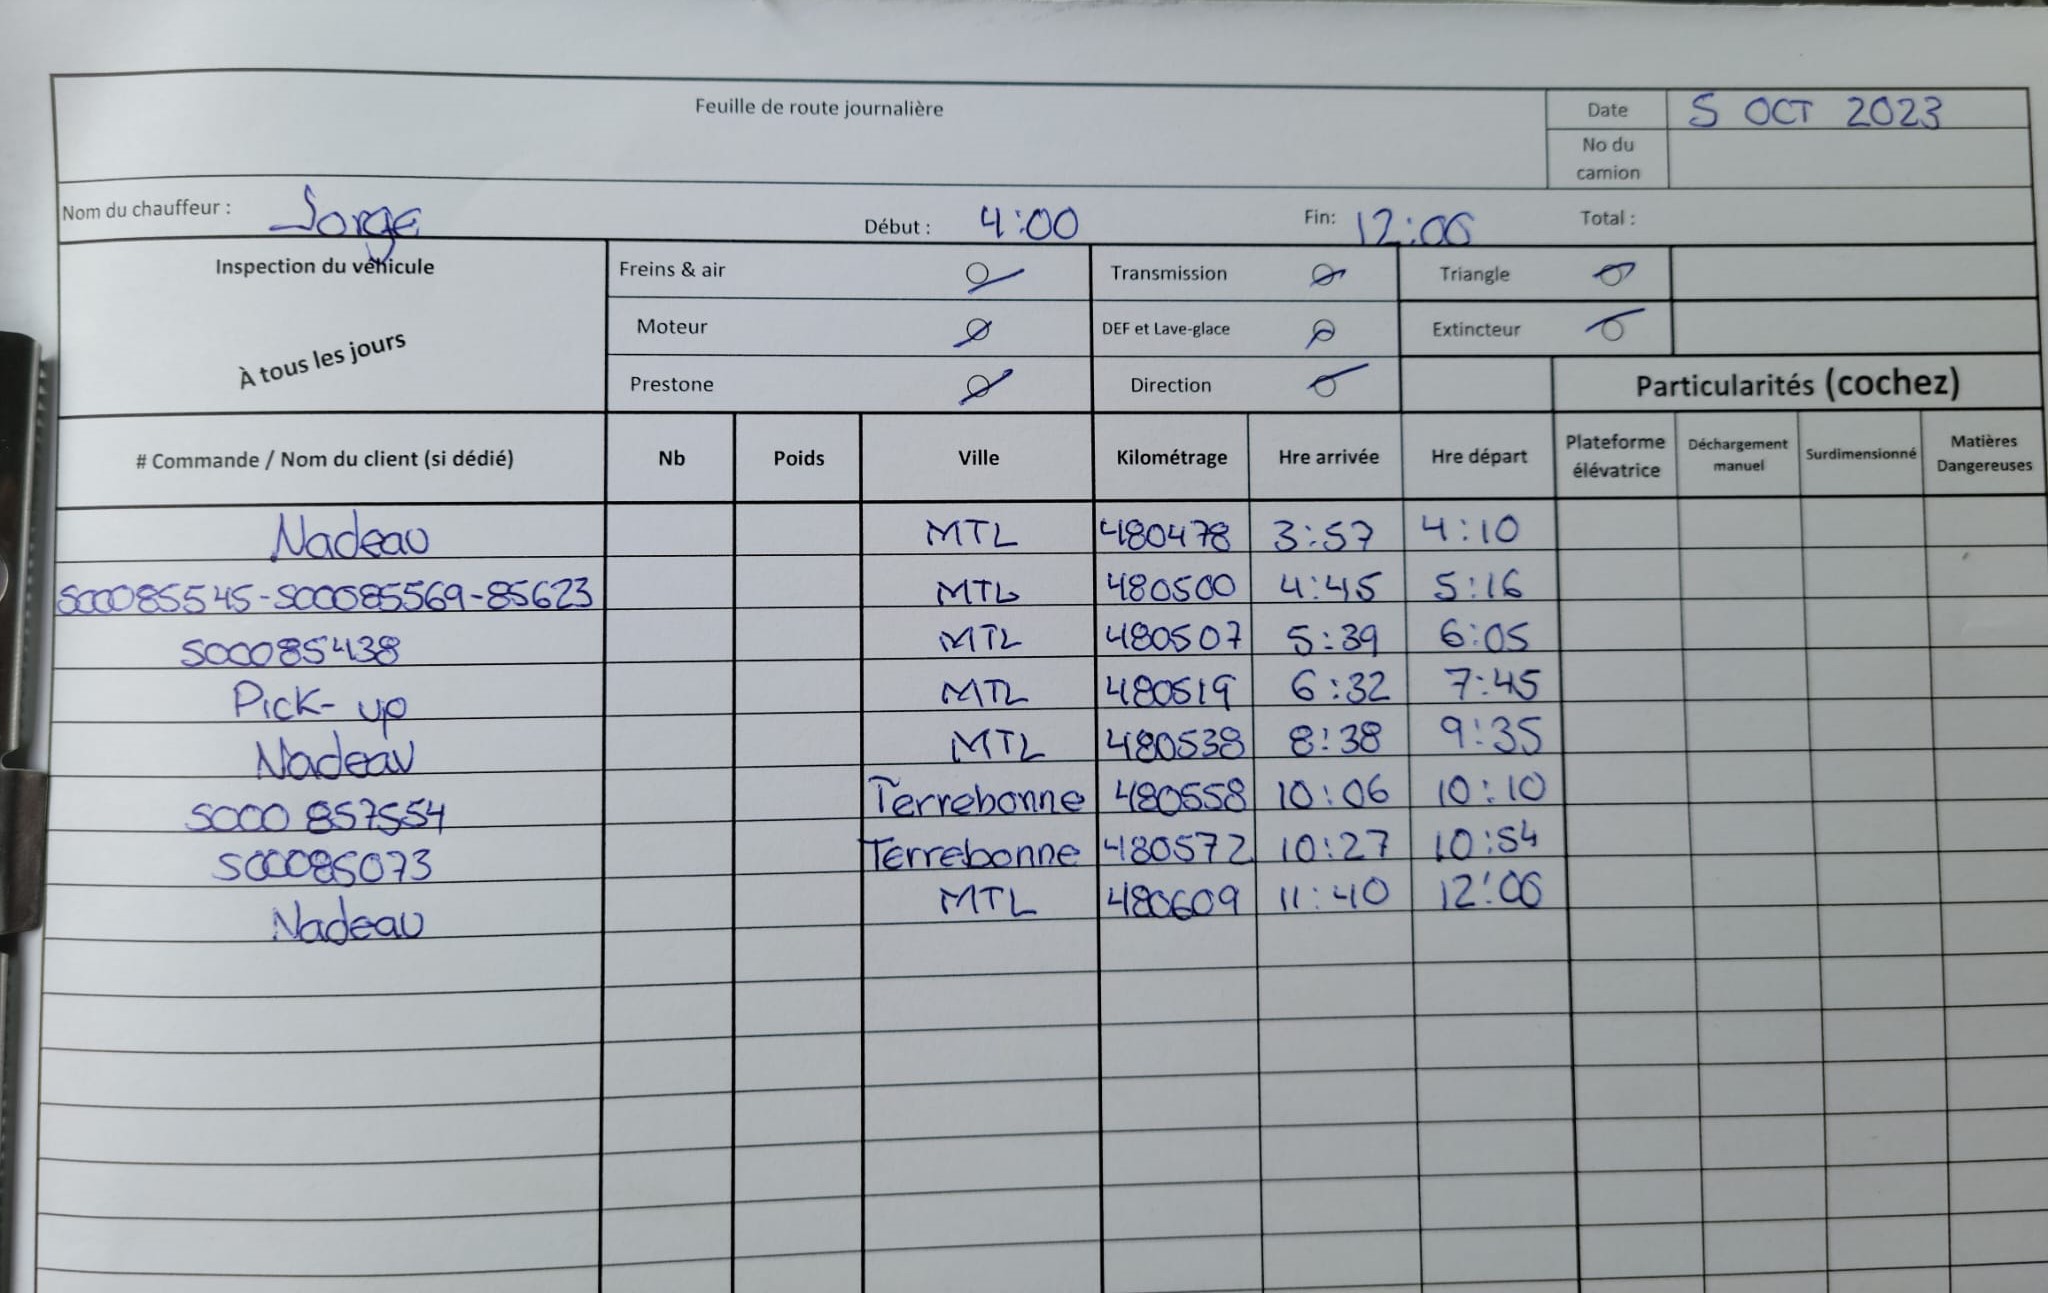 Feuille de route journalière
Date 5 OCT 2023
No du camion
Nom du chauffeur : Jorge Début : 4:00 Fin: 12:00 Total :
Inspection du véhicule
À tous les jours
Freins & air Transmission Triangle
Moteur DEF et Lave-glace Extincteur
Prestone Direction Particularités (cochez)
# Commande / Nom du client (si dédié) Nb Poids Ville Kilométrage Hre arrivée Hre départ Plateforme élévatrice Déchargement manuel Surdimensionné Matières Dangereuses
Nadeau MTL 480478 3:57 4:10
S00085545-S00085569-85623 MTL 480500 4:45 5:16
S00085438 MTL 480507 5:39 6:05
Pick-up MTL 480519 6:32 7:45
Nadeau MTL 480538 8:38 9:35
S000857554 Terrebonne 480558 10:06 10:10
S00085073 Terrebonne 480572 10:27 10:54
Nadeau MTL 480609 11:40 12:00